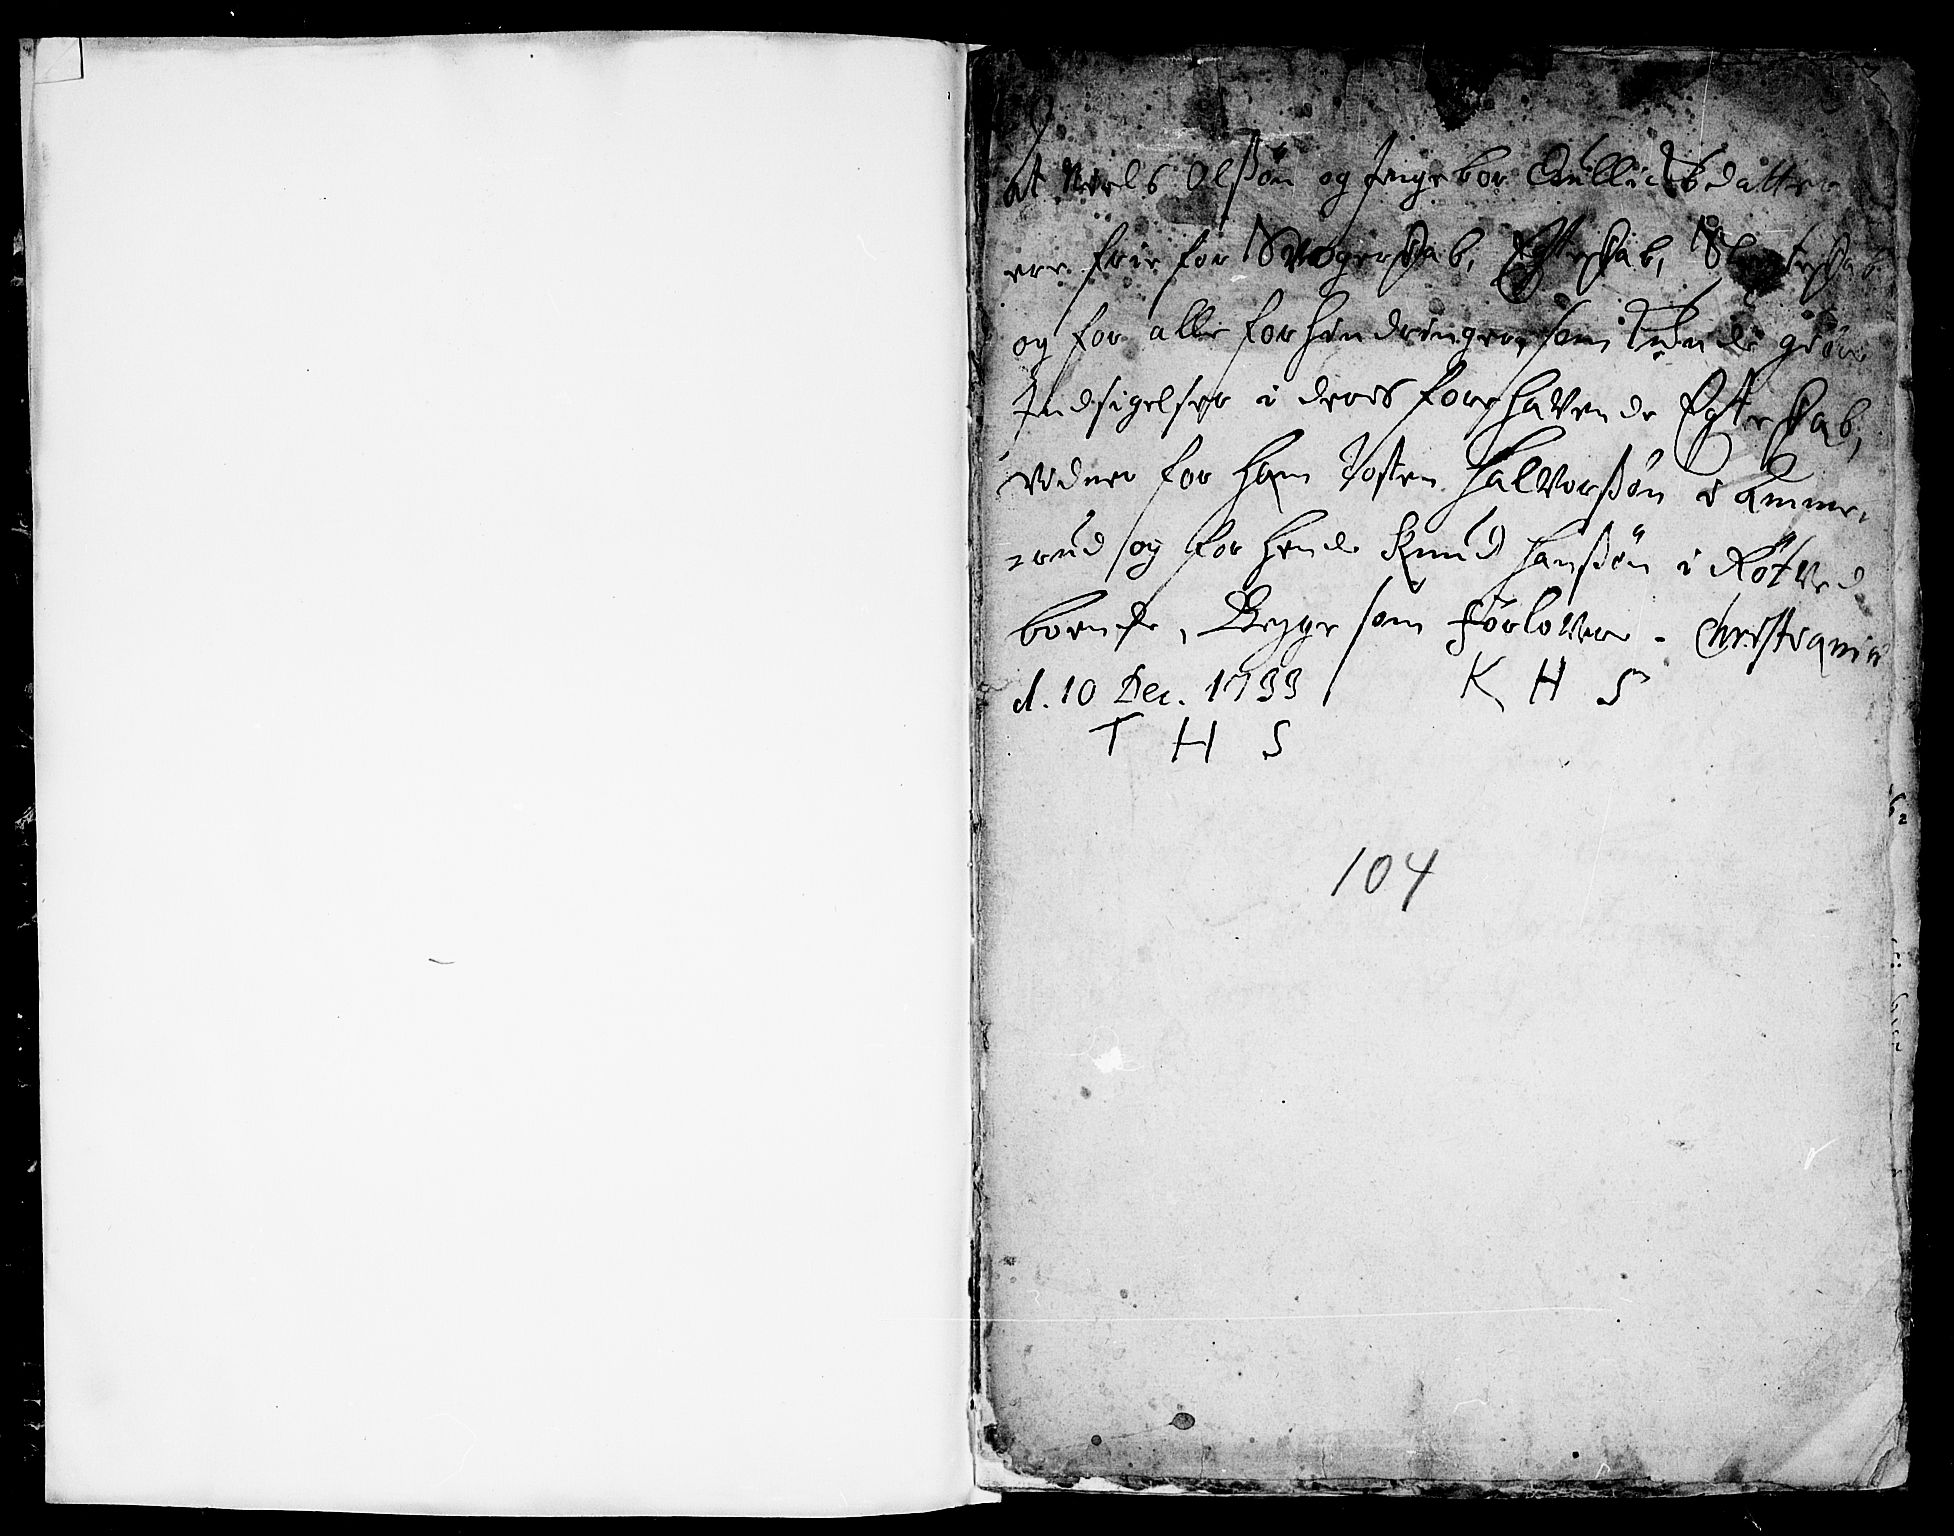 at Niels Olssøn og Ingebor Gulliksdatter
ere frie for Svogerskab, Egteskab, Slegteskab
og for alle forhindringer, som kunde giøre
Indsigelser i deres forehavende Egteskab,
vidner for ham Tosten Halvorssøn i Ammer-
=rud og for hende Knud Hanssøn i Røtved
boende, Begge som Forlovere - Christiania
d. 10 Dec. 1733 K H S
T H S
104